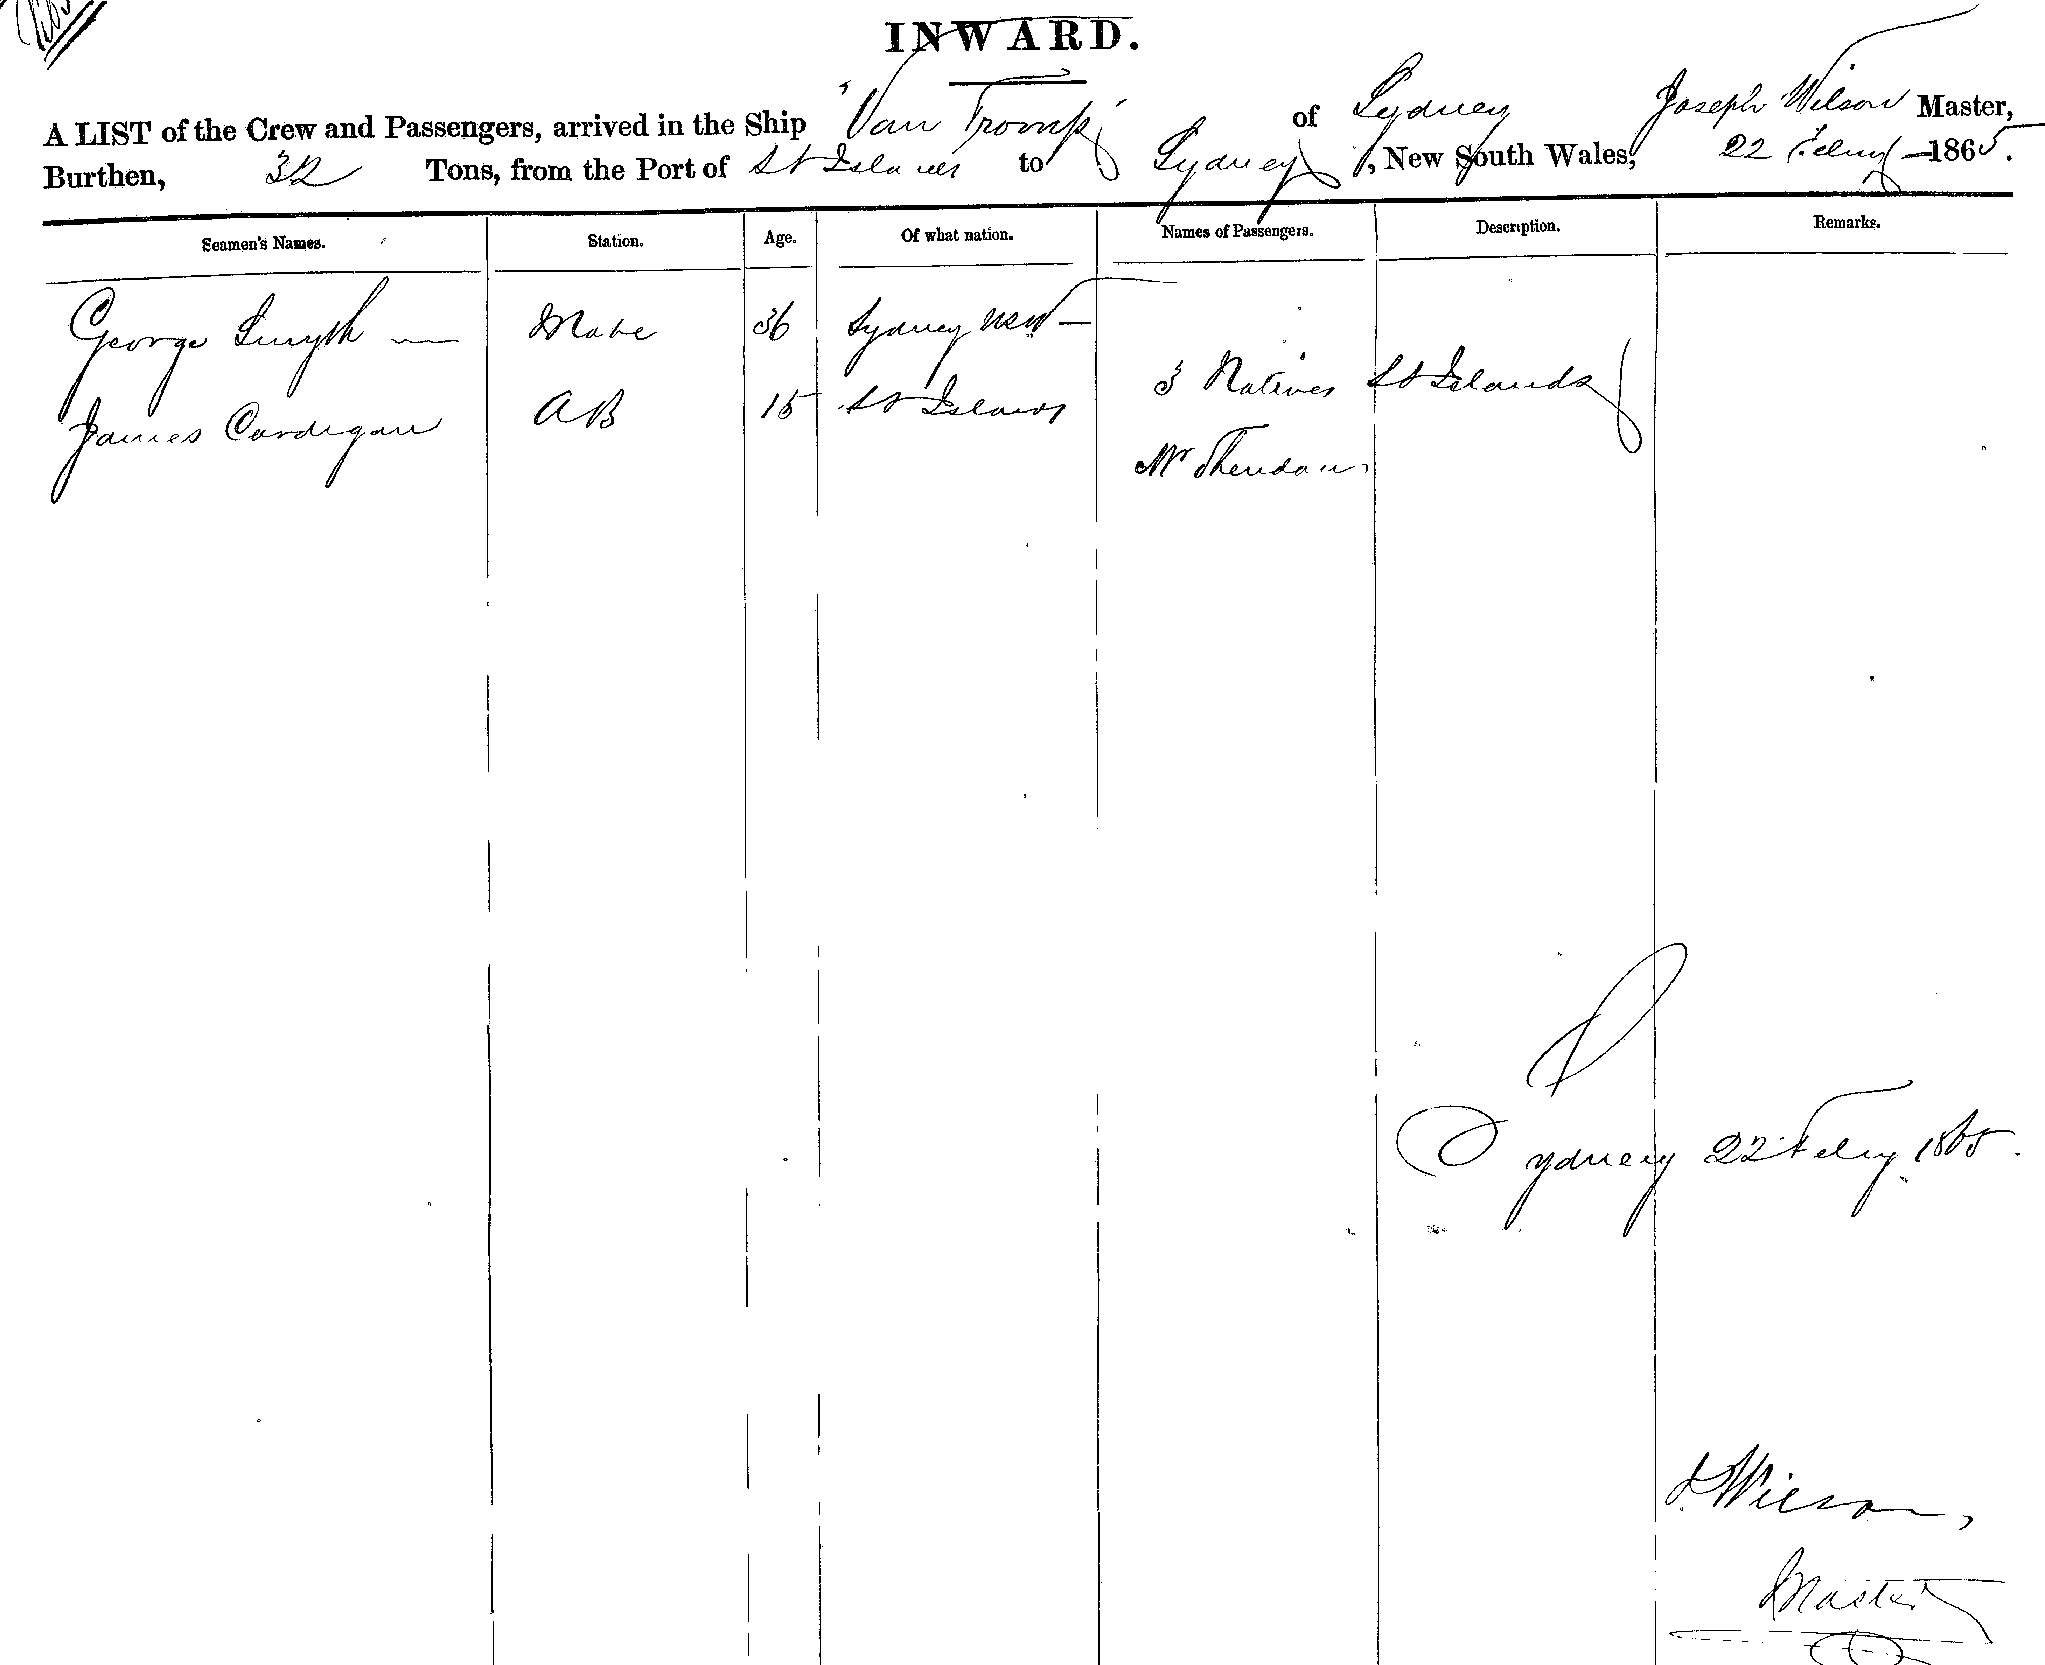 INWARD.
A LIST of the Crew and Passengers, arrived in the Ship "Van Tromp" of Sydney Joseph Wilson Master,
Burthen, 32 Tons, from the Port of St Islands to Sydney, New South Wales, 22 Febry 1865.
Seamen's Names. Station. Age. Of what nation. Names of Passengers. Description. Remarks.
George Smyth Mate 36 Sydney NSW
3 Natives St Islands
James Cardigan AB 15 St Islands
Mr
Sydney 22 Febry 1865.
J. Wilson,
Master